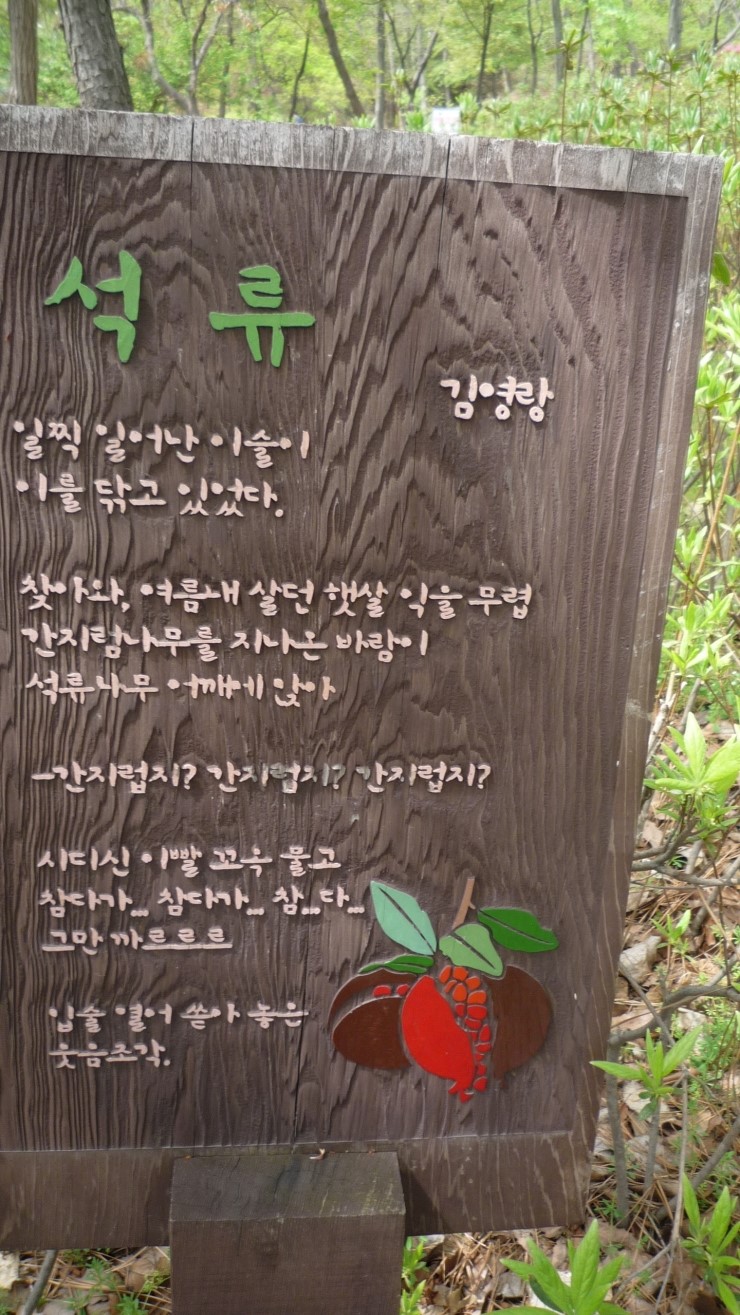 석류
김영랑
일찍 일어난 이슬이
이를 닦고 있었다.
찾아와, 여름내 살던 햇살 익을 무렵
간지럼나무를 지나온 바람이
석류나무 어깨에 앉아
-간지럽지? 간지럽지? 간지럽지?
시디신 이빨 꼬옥 물고
참다가... 참다가... 참...다...
그만 까르르르
입술 열어 쏟아 놓은
웃음조각.